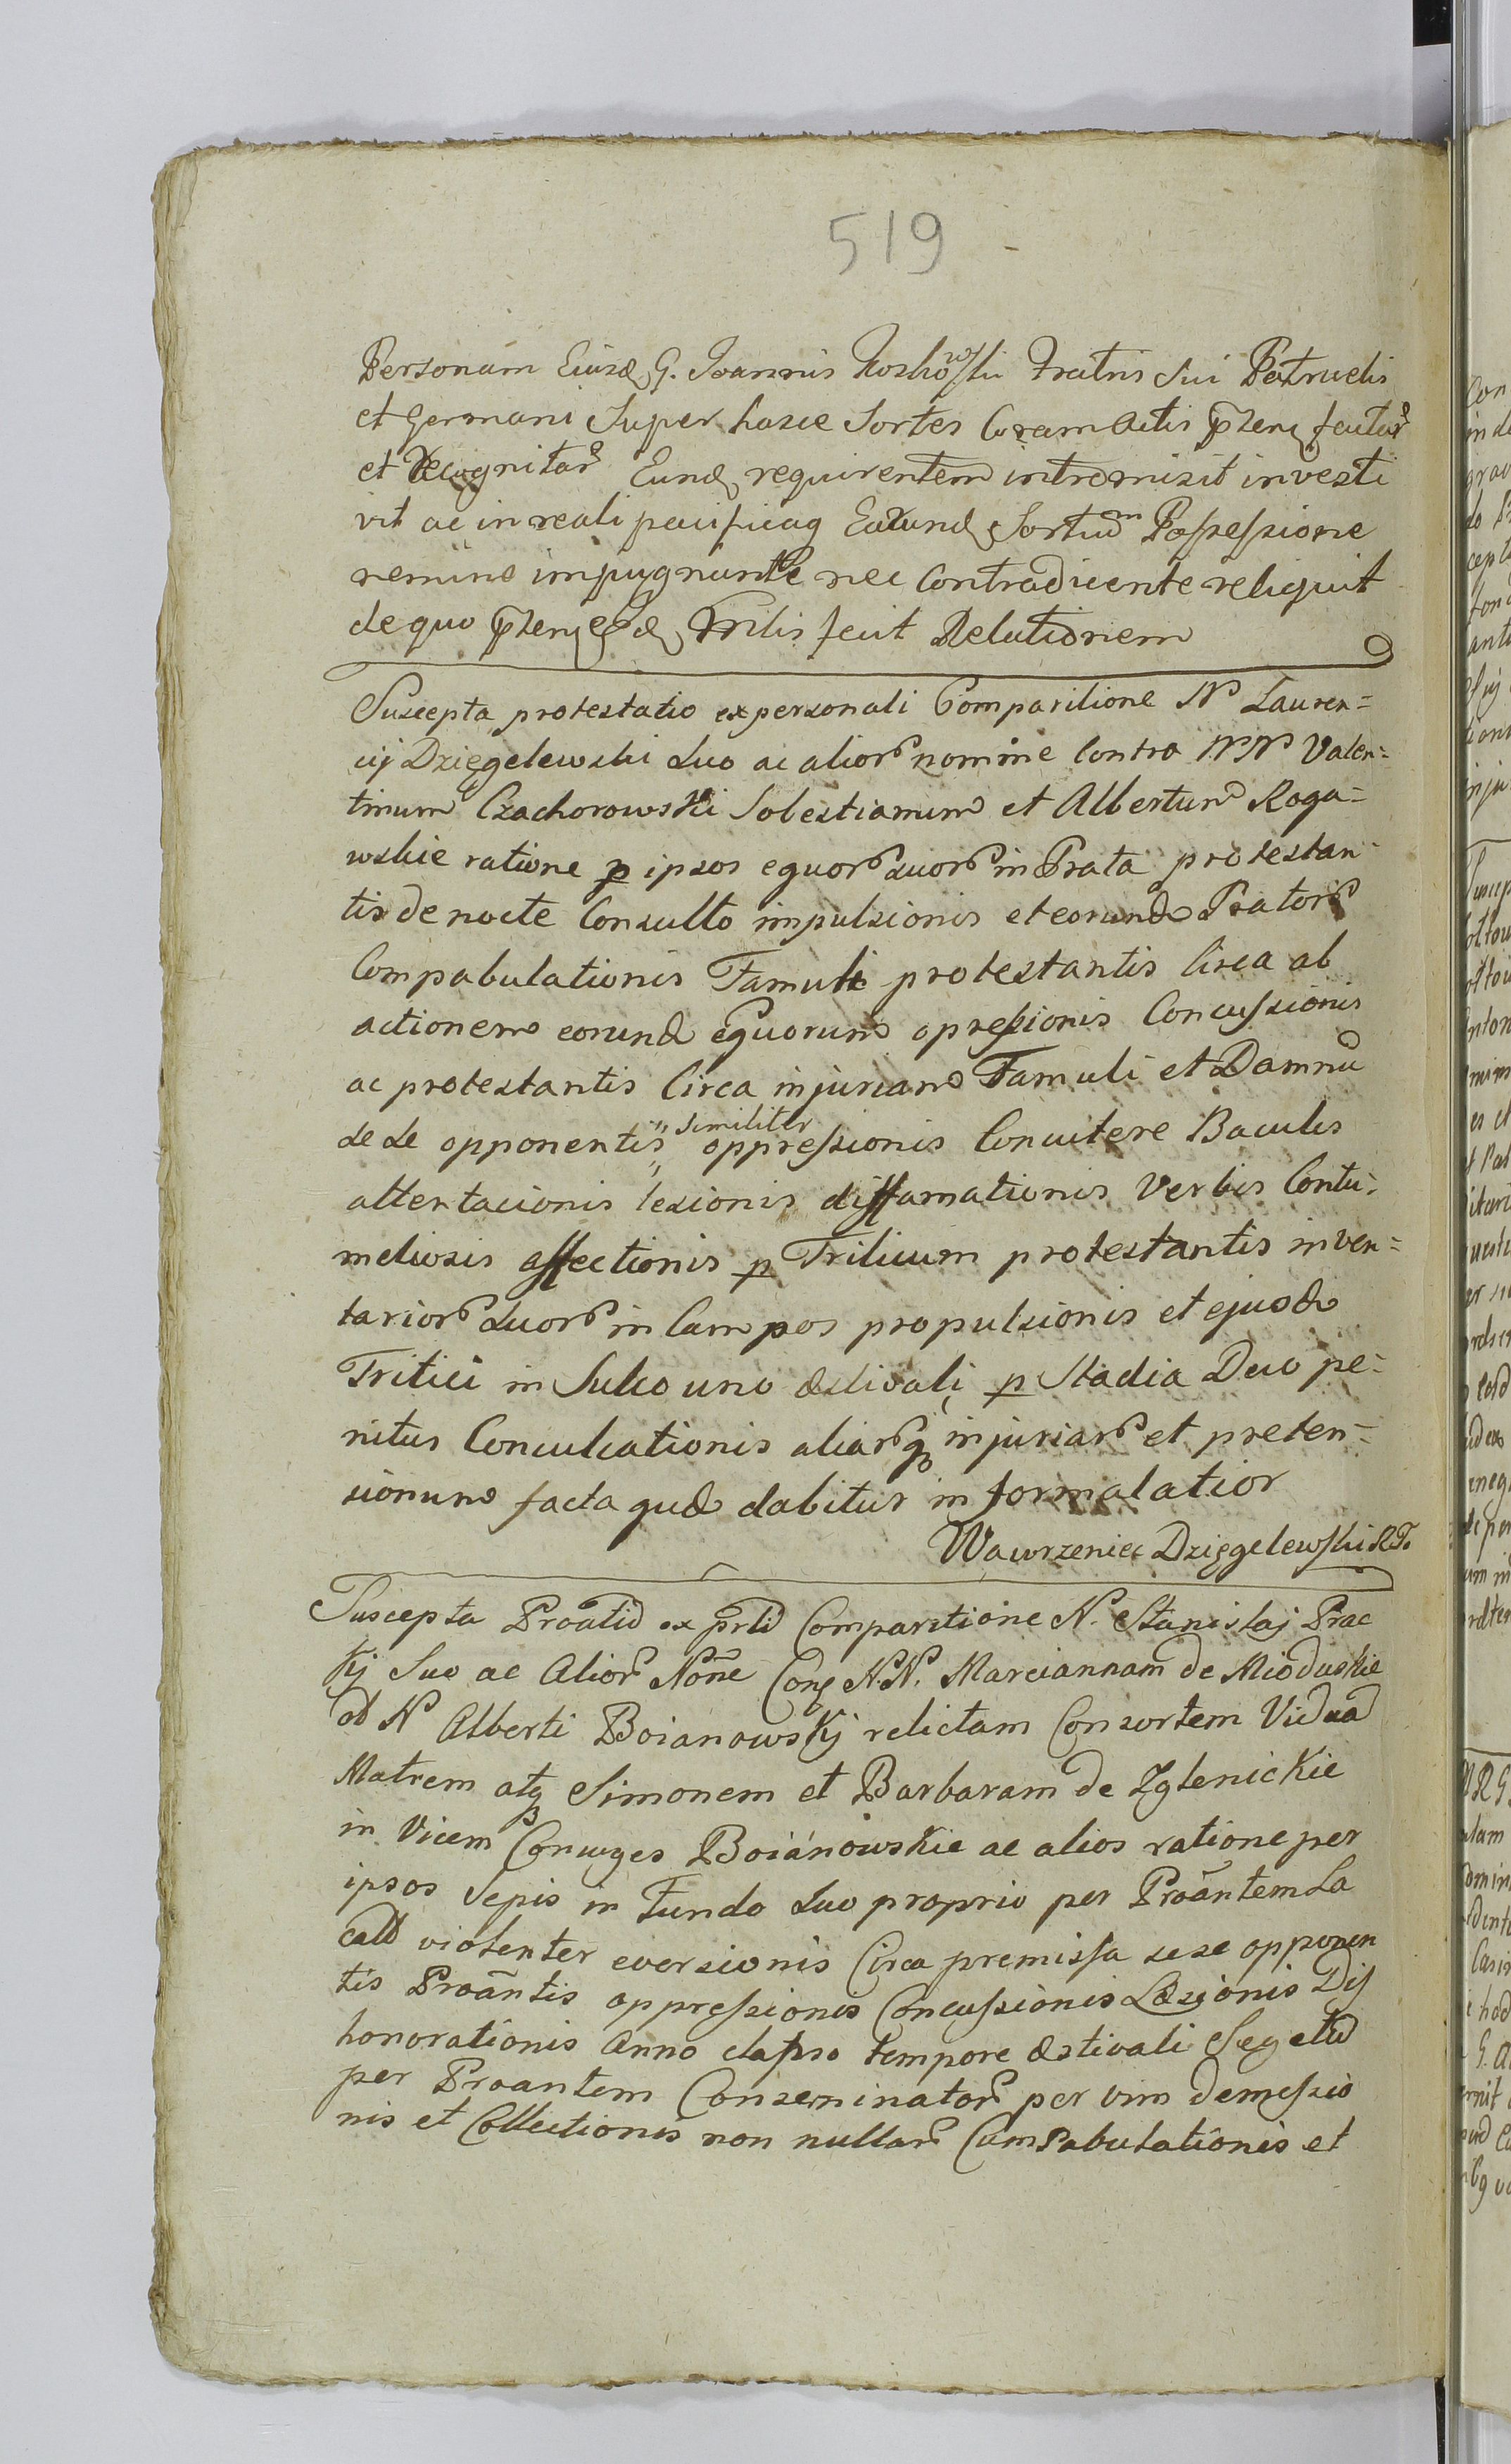 519
Personam Eiusd G. Joannis Koskowski Fratris Sui Patruelis
et Germani Super hasce Sortes Coram Actis pnten factar
et Recognitar Eund requirentem intromisit investi
vit ac in reali pacificaq Earund Sortium Possessione
nemine impugnante nec Contradicente reliquit
de quo pnten fecit Relationem
Suscepta protestatio ex personali Comparitione N Lauren=
cij Dzięgelewski suo ac alior nomine Contra NN Valen=
tinum Czachorowski Sobestianum et Albertum Roga=
wskie ratione p ipsos equor suor in Prata protestan
tis de nocte Consulto impulsionis et eorund Prator
Compabulationis Famuli protestantis Circa ab
actionem eorund equorum opressionis Concussionis
ac protestantis Circa injuriam Famuli et Damnu
se se opponentis similiter oppressionis Concutere Baculis
attentacionis lesionis diffamationis Verbis Contu=
meliosis affectionis p Triticum protestantis inven=
tarior suor in Campos propulsionis et ejusd
Tritici in Sulco uno æstivali p Stadia Duo pe=
nitus Conculcationis aliarq injuriar et preten=
sionum facta qud dabitur in forma latior
Wawrzeniec Dzięgelewski
Suscepta Proatio ex prli Comparitione N. Stanislaj Prac
kij Suo ac Alior Noñe Con N.N. Marciannam de Mioduskie
N Alberti Boianowskij relictam Consortem Viduã
Matrem atq Simonem et Barbaram de Zglenickie
in Vicem Coniuges Boiánowskie ac alios ratione per
ipsos Sepis in Fundo suo proprio per Proãntem Lo
cata violenter eversionis Circa premissa sese opponen
tis Proãntis oppressionis Concussionis Læsionis Dis
honorationis Anno elapso tempore æstivali Segetũ
per Proantem Conseminator per vim demessio
nis et Collectionis non nullar Compabulationis et